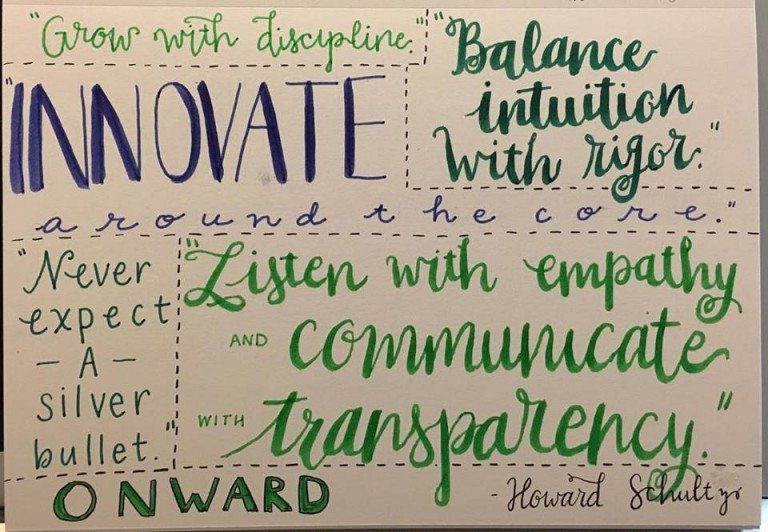 "Grow with discipline."
"Balance
intuition
with rigor."
"INNOVATE
around the core."
"Never
expect
- A -
silver
bullet."
"Listen with empathy
AND communicate
WITH transparency."
ONWARD
-Howard Schultz